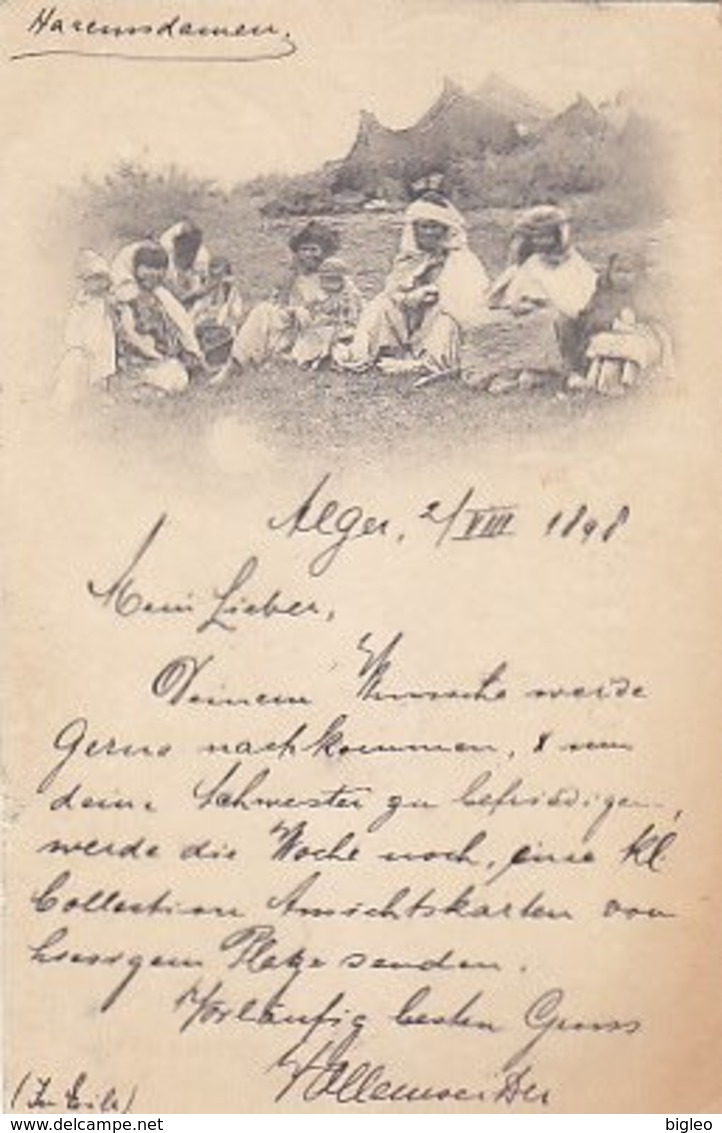 Haremsdamen.
Alger, 2/VIII 1898
Mein Lieber,
Deinem Wunsche werde
Gerne nachkommen, & um
deine Schwester zu befriedigen,
werde die Woche noch, eine kl.
Collection Ansichtskarten von
hiesigem Platze senden.
Vorläufig besten Gruss
(In Eile)
delcampe.net
bigleo